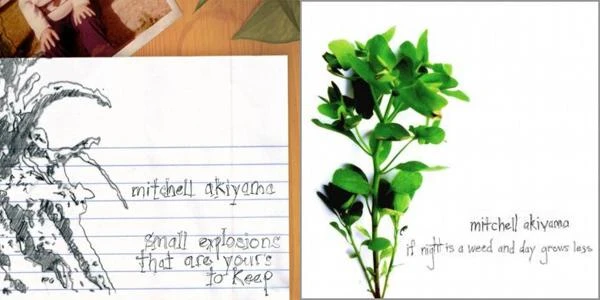 mitchell akiyama
small explosions
that are yours
to keep
mitchell akiyama
if night is a weed and day grows less